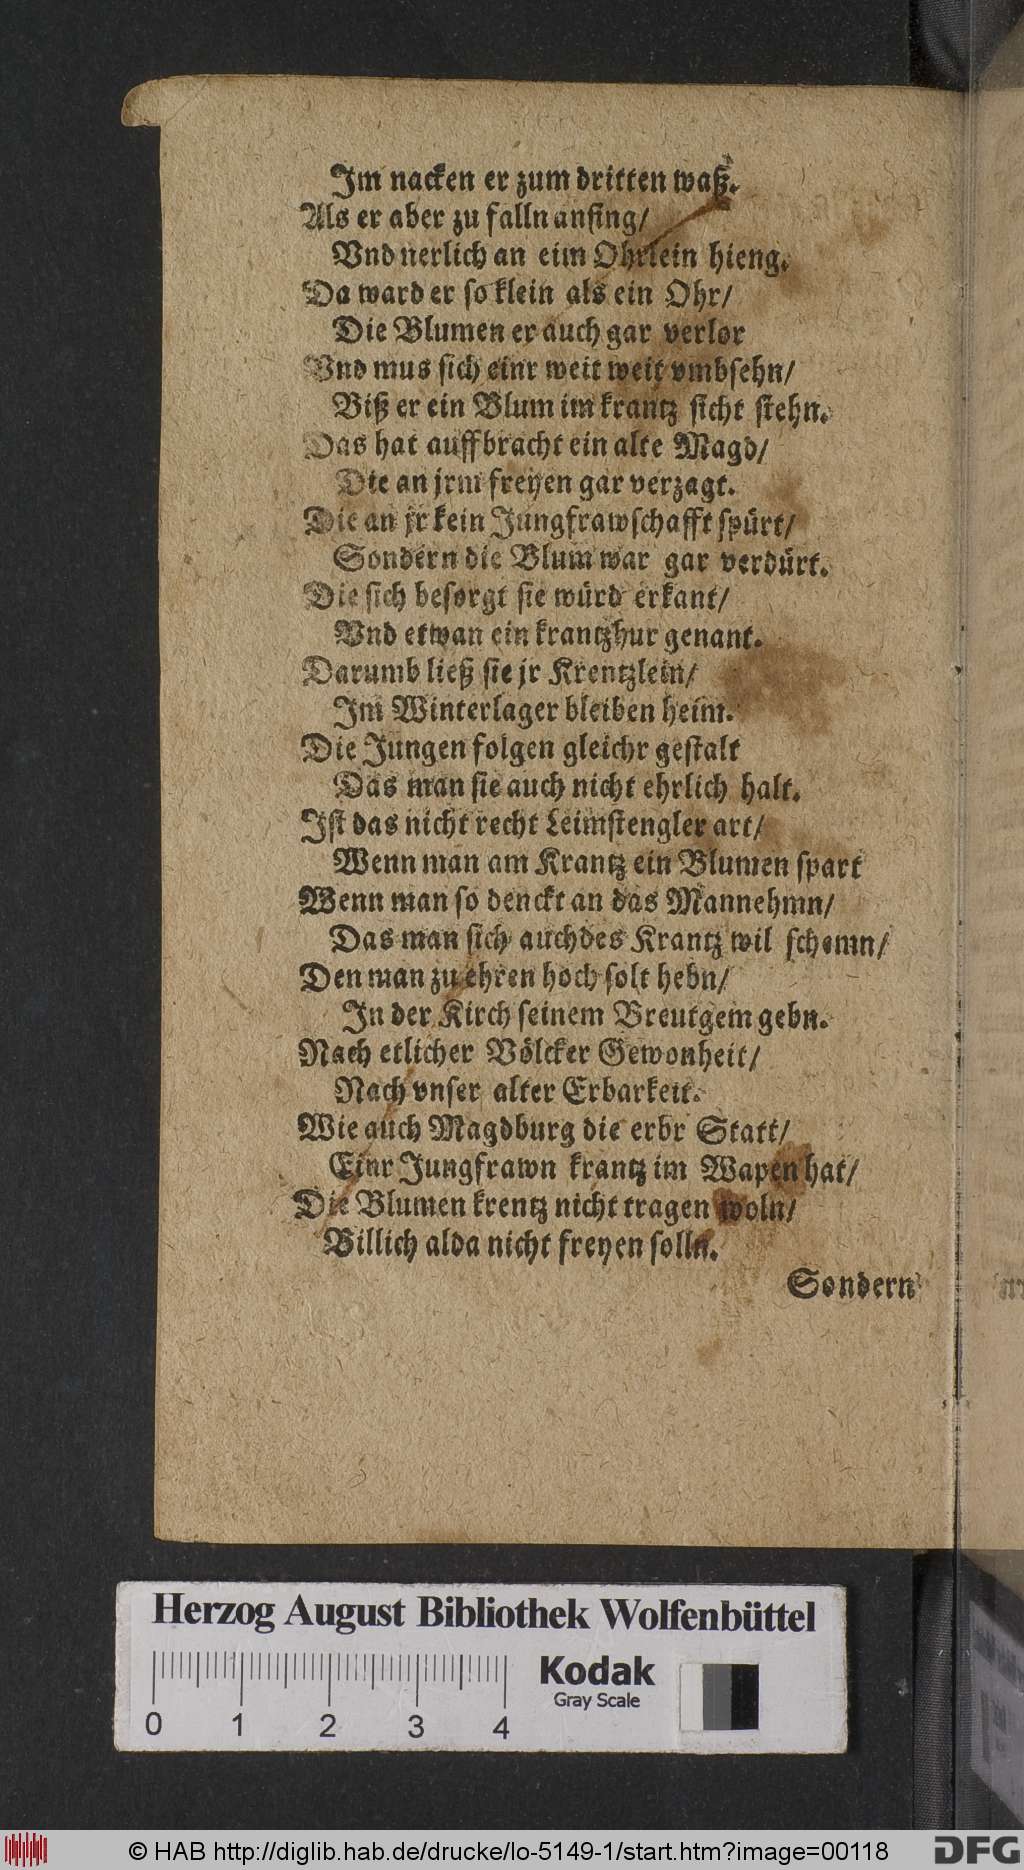 Im nacken er zum dritten waß.
Als er aber zu falln anfing/
Vnd nerlich an eim Ohrlein hieng.
Da ward er so klein als ein Ohr/
Die Blumen er auch gar verlor
Vnd mus sich einr weit weit vmbsehn/
Biß er ein Blum im krantz sicht stehn.
Das hat auffbracht ein alte Magd/
Die an jrm freyen gar verzagt.
Die an jr kein Jungfrawschafft spürt/
Sondern die Blum war gar verdürt.
Die sich besorgt sie würd erkant/
Vnd etwan ein krantzhur genant.
Darumb ließ sie jr Krentzlein/
Im Winterlager bleiben heim.
Die Jungen folgen gleichr gestalt
Das man sie auch nicht ehrlich halt.
Ist das nicht recht Leimstengler art/
Wenn man am Krantz ein Blumen spart
Wenn man so denckt an das Mannehmn/
Das man sich auch des Krantz wil schemn/
Den man zu ehren hoch solt hebn/
In der Kirch seinem Breutgem gebn.
Nach etlicher Völcker Gewonheit/
Nach vnser alter Erbarkeit.
Wie auch Magdburg die erbr Statt/
Einr Jungfrawn krantz im Wapen hat/
Die Blumen krentz nicht tragen woln/
Billich alda nicht freyen solln.
Sondern
Herzog August Bibliothek Wolfenbüttel
Kodak
Gray Scale
0 1 2 3 4
© HAB http://diglib.hab.de/drucke/lo-5149-1/start.htm?image=00118
DFG